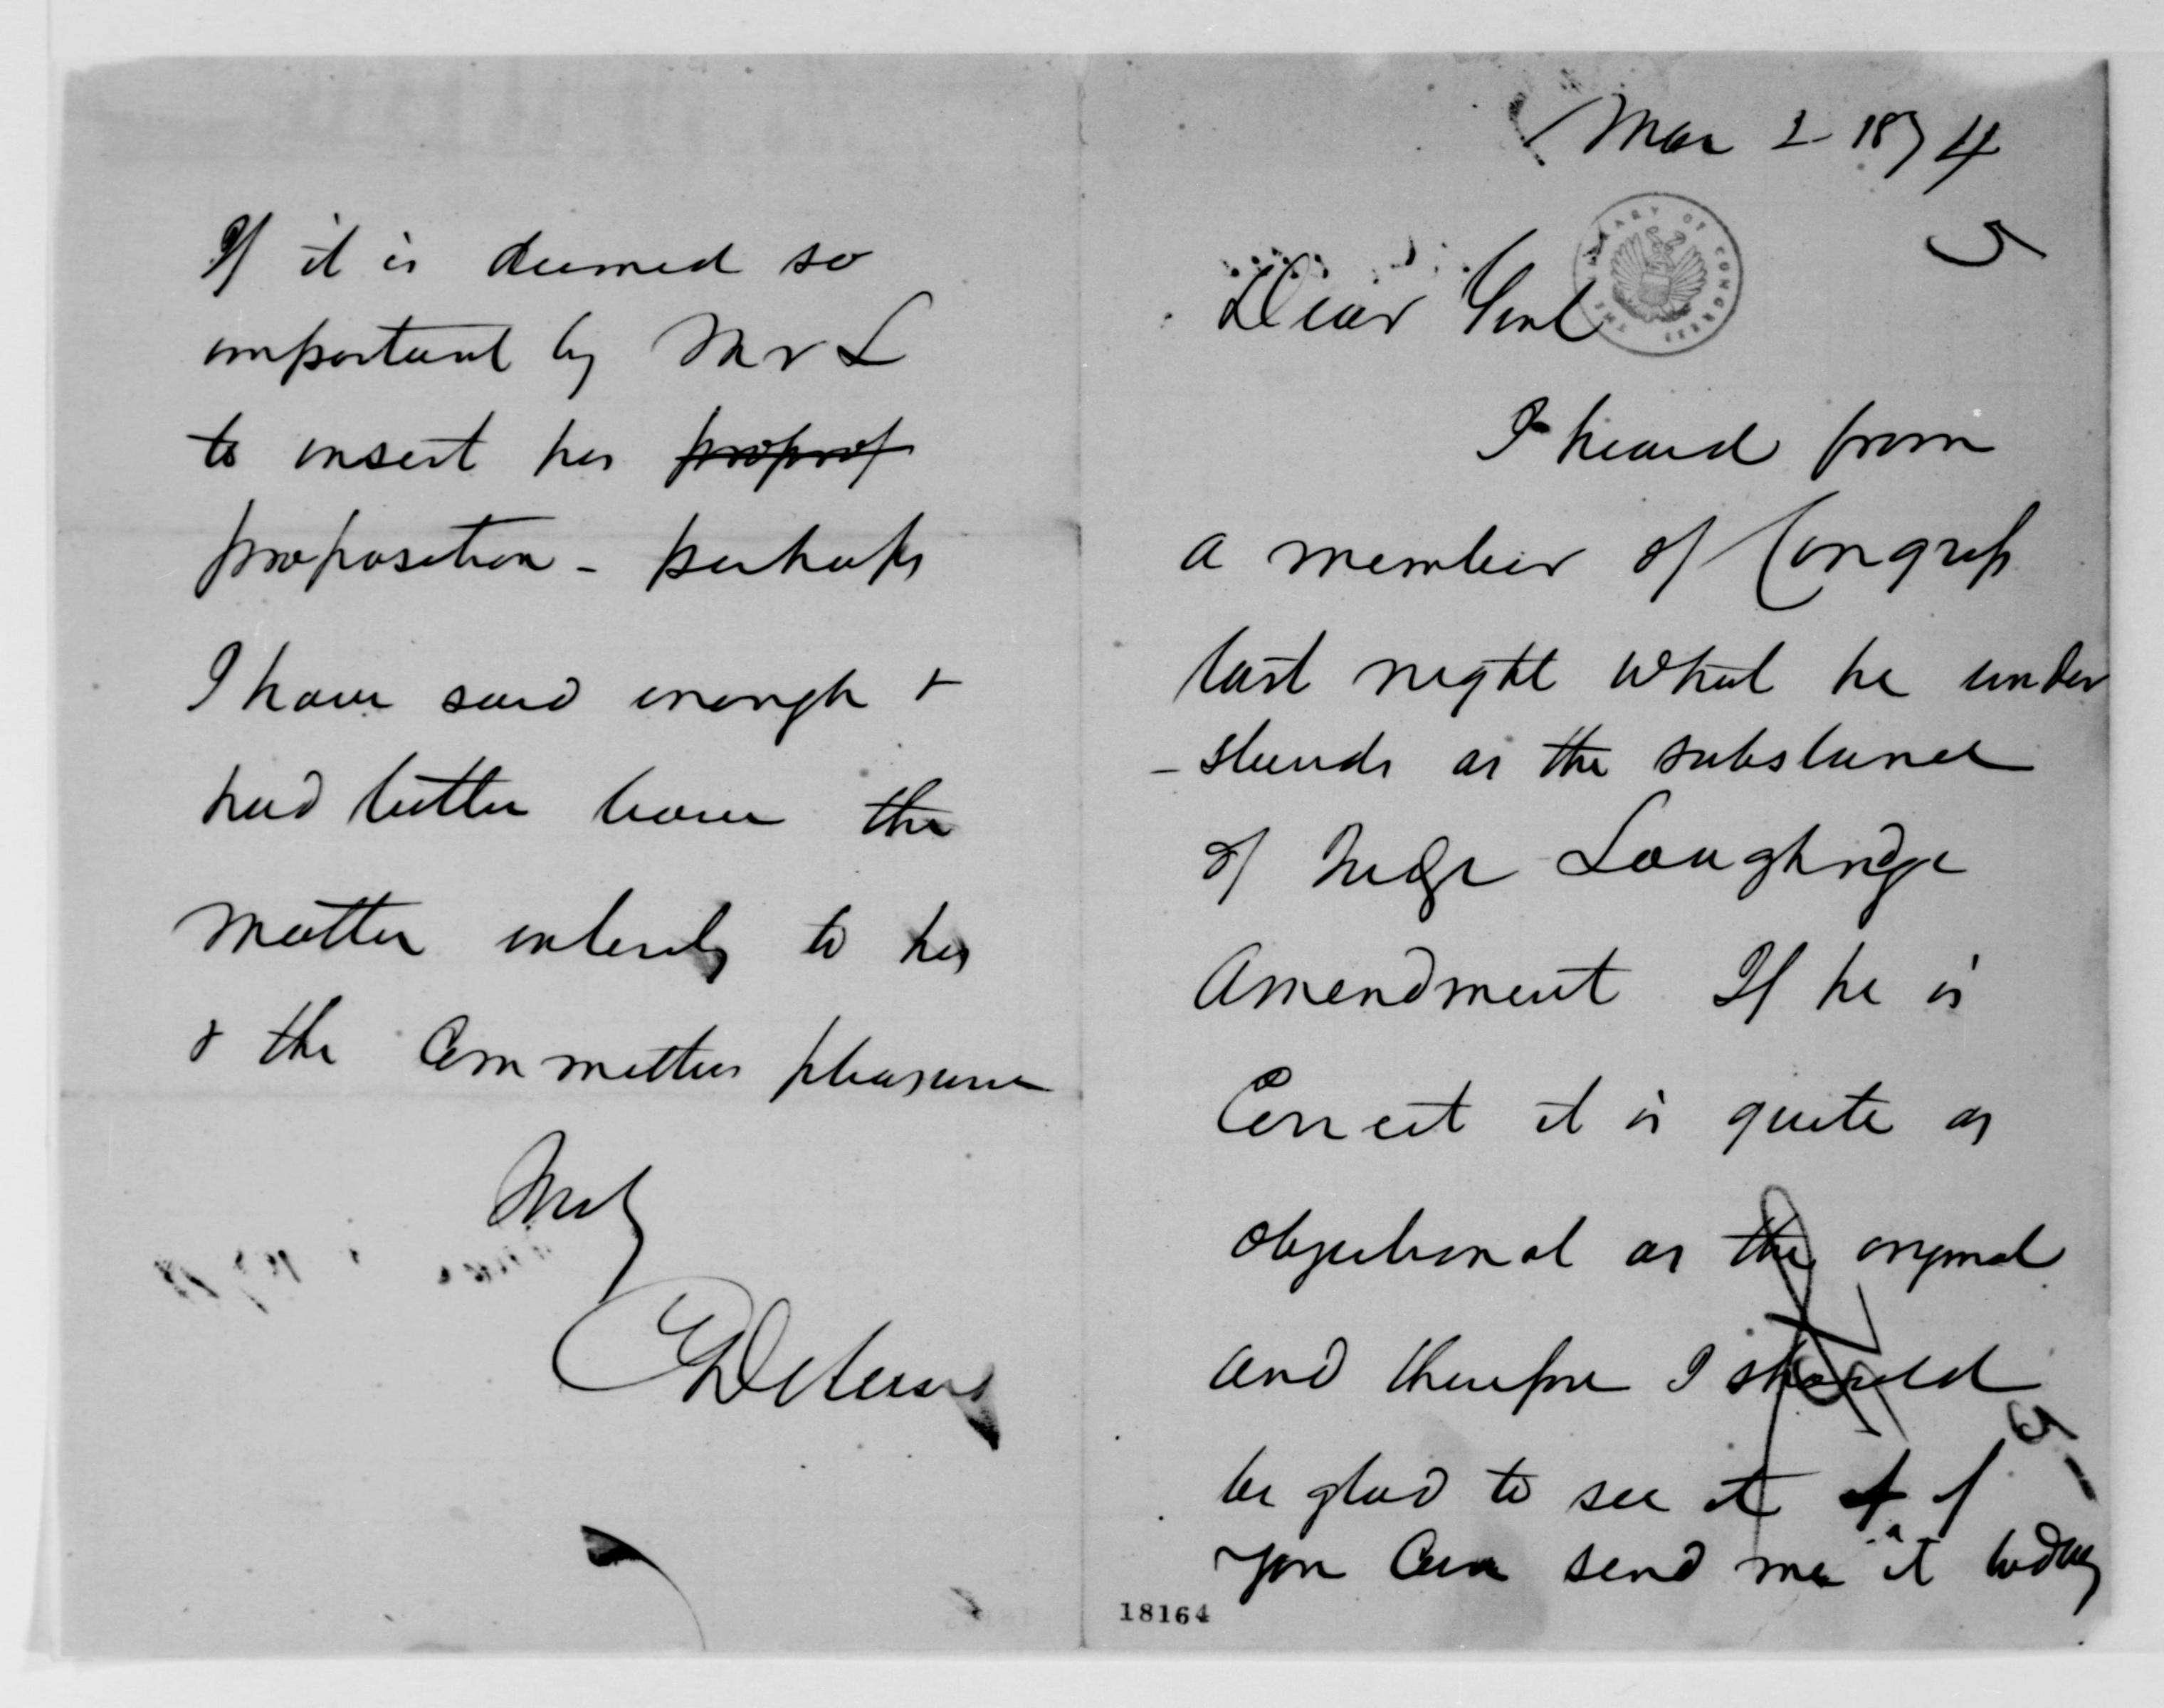 Mar 2 1874
5
THE LIBRARY OF CONGRESS
Dear Genl
I heard from
a member of Congress
last night what he under
-stands as the substance
of Judge Loughridge
Amendment If he is
Correct it is quite as
objectional as the original
and therefore I should
be glad to see it if if
you can send me it today
18164
If it is deemed so
important by Mr L
to insert his propos
proposition - perhaps
I have said enough +
had better leave the
matter entirely to his
& the Committees pleasure
Truly